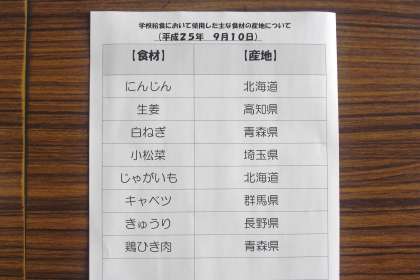 学校給食において使用した主な食材の産地について
（平成２５年　９月１０日）
【食材】　【産地】
にんじん　北海道
生姜　高知県
白ねぎ　青森県
小松菜　埼玉県
じゃがいも　北海道
キャベツ　群馬県
きゅうり　長野県
鶏ひき肉　青森県